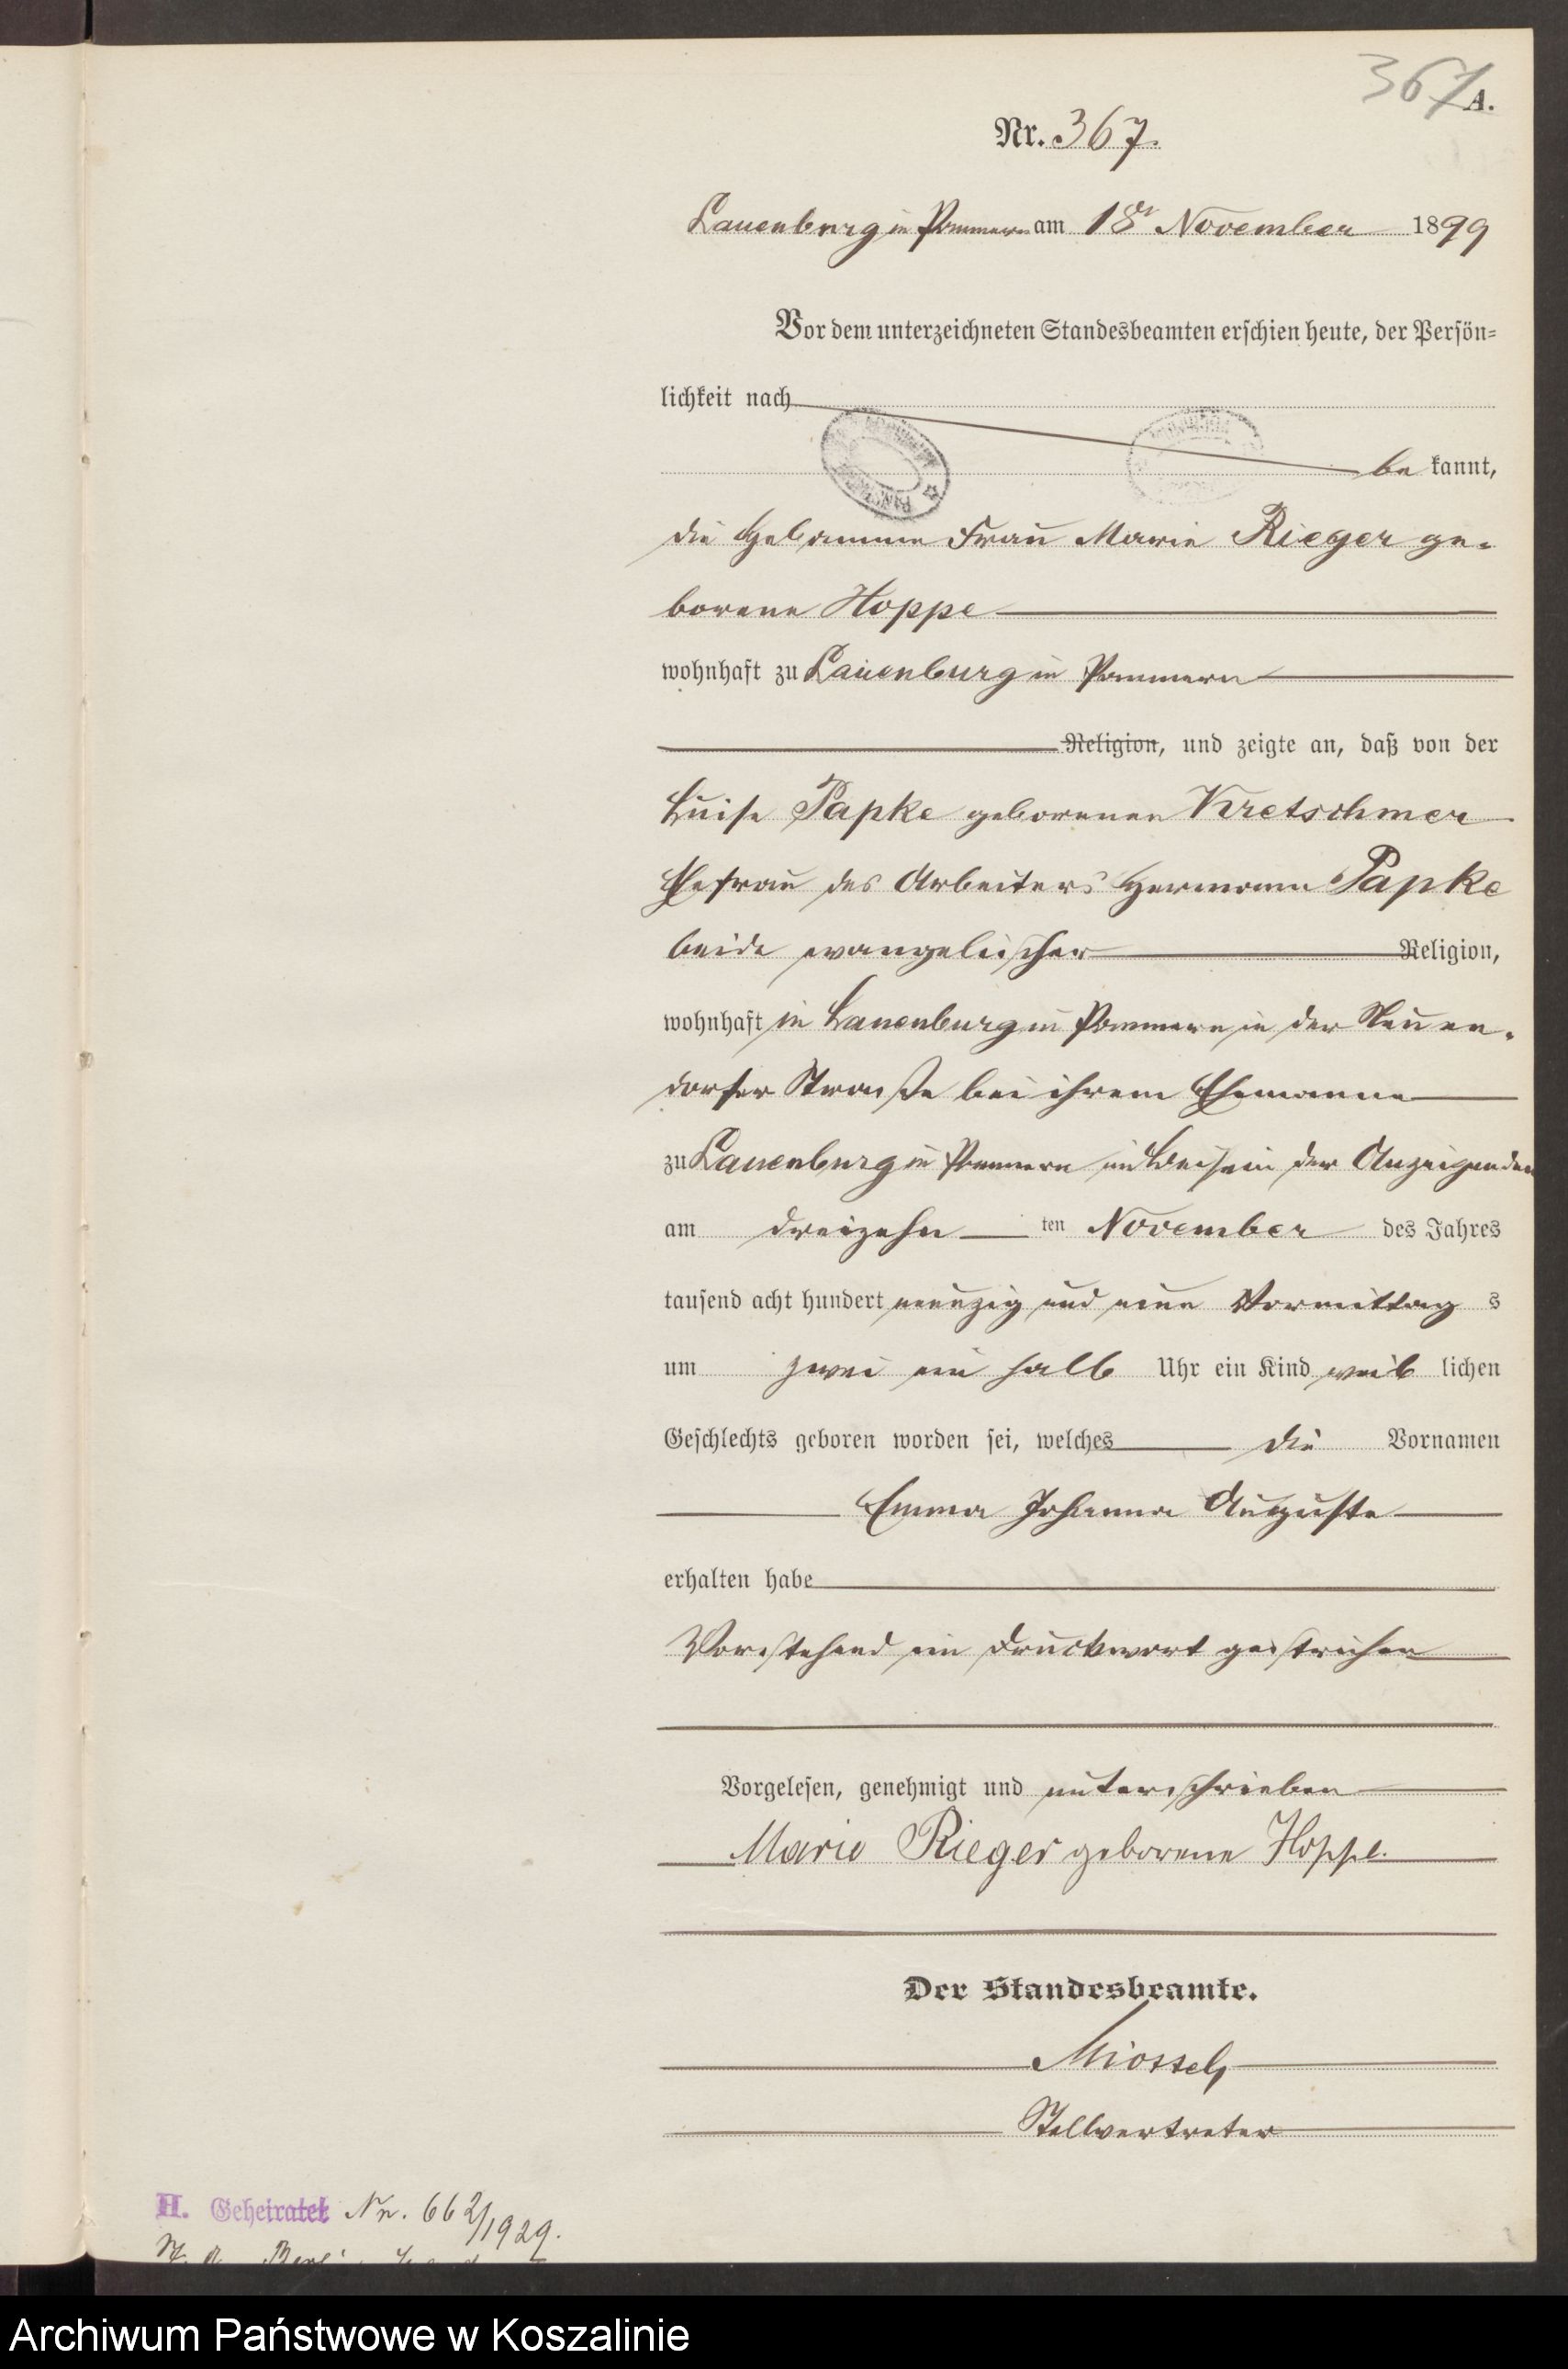 367
A.
Nr. 367.
Lauenburg in Pommern am 18t November 1899
Vor dem unterzeichneten Standesbeamten erschien heute, der Persön-
lichkeit nach
be kannt,
die Hebamme Frau Marie Rieger ge-
borene Hoppe
wohnhaft zu Lauenburg in Pommern
Religion, und zeigte an, daß von der
Luise Papke geborenen Kretschmer
Ehefrau des Arbeiters Hermann Papke
beide evangelischer Religion,
wohnhaft in Lauenburg in Pommern in der Neuen-
dorfer Straße bei ihrem Ehemanne
zu Lauenburg in Pommern im Beisein der Anzeigenden
am dreizehn ten November des Jahres
tausend acht hundert neunzig und neun Vormittag s
um zwei ein halb Uhr ein Kind weib lichen
Geschlechts geboren worden sei, welches die Vornamen
Emma Johanna Auguste
erhalten habe
Vorstehend ein Druckwort gestrichen
Vorgelesen, genehmigt und unterschrieben
Marie Rieger geborene Hoppe.
Der Standesbeamte.
Stellvertreter
H. Geheiratet Nr. 662/1929.
Archiwum Państwowe w Koszalinie